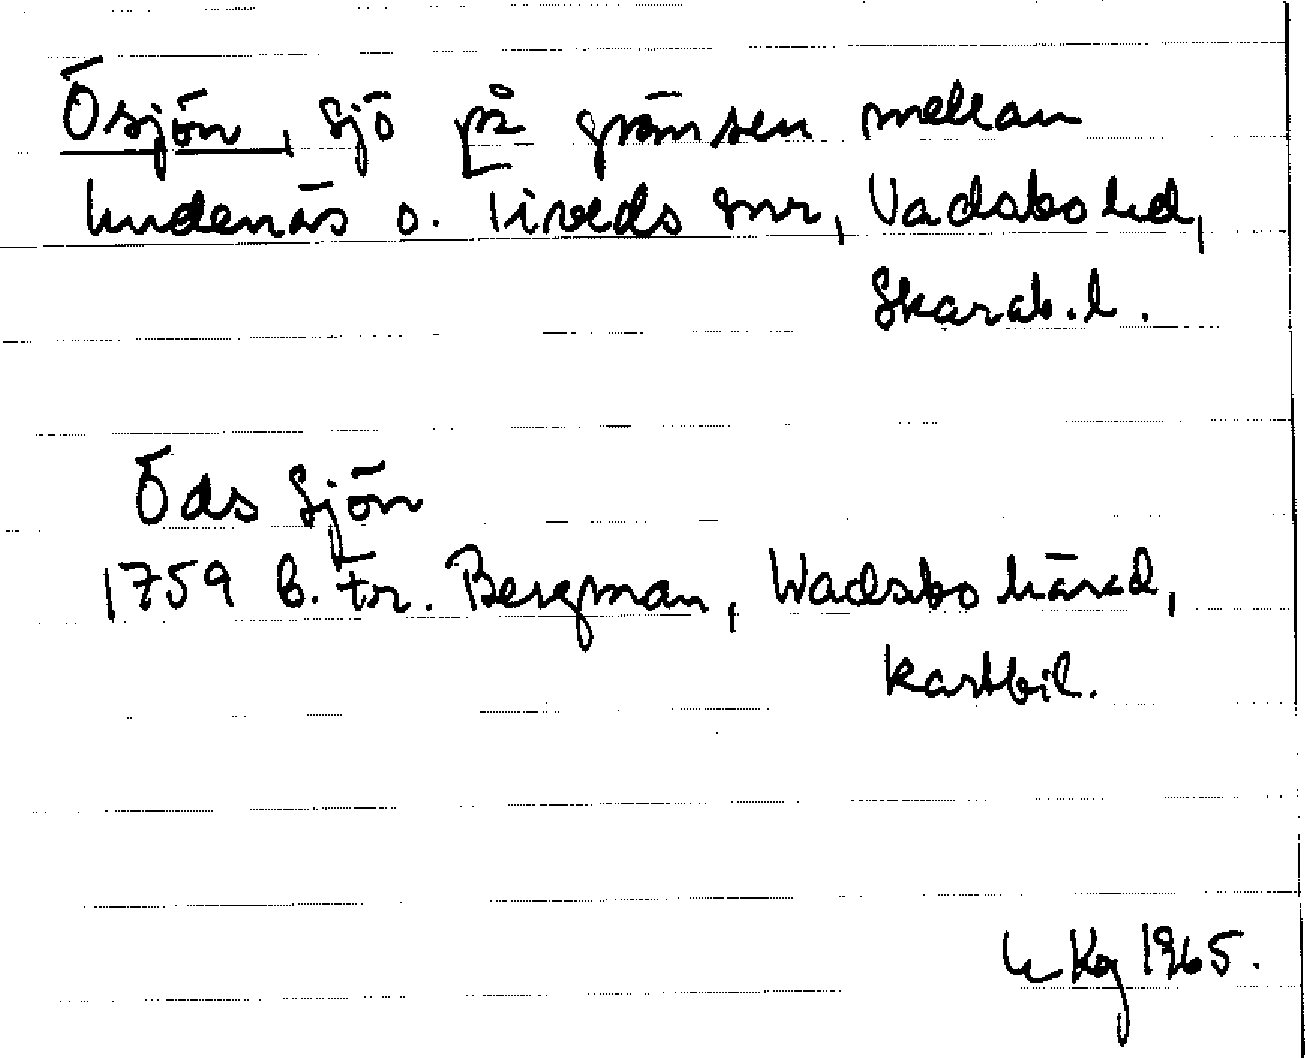 Ösjön, sjö på gränsen mellan
Undenäs o. Tiveds snr, Vadsbo hd,
Skarab. l.
Öds Sjön
1759 B. Fr. Bergman, Wadsbo härad,
kartbil.
Kg 1965.